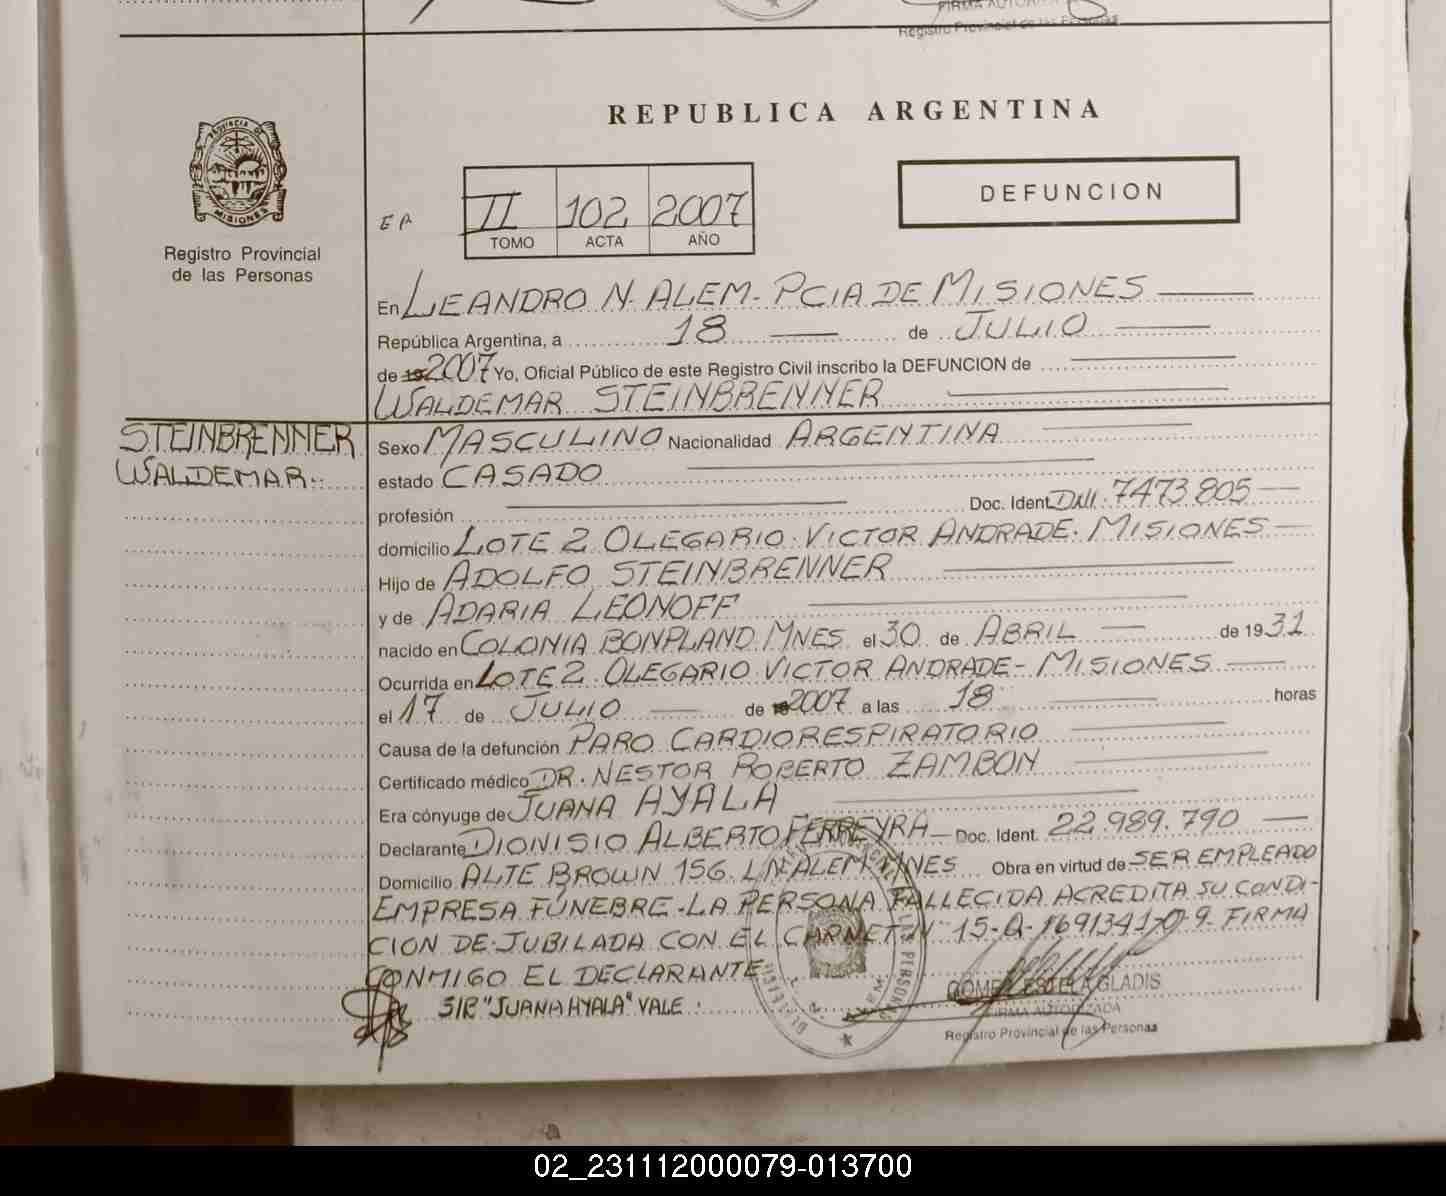 FIRMA AUTORIZADA
Registro Provincial de las Personas
REPUBLICA ARGENTINA
PROVINCIA DE
MISIONES
Registro Provincial
de las Personas
II 102 2007
TOMO ACTA AÑO
DEFUNCION
En LEANDRO N. ALEM - PCIA DE MISIONES
República Argentina, a 18 de JULIO
de 19 2007 Yo, Oficial Público de este Registro Civil inscribo la DEFUNCION de
WALDEMAR STEINBRENNER
STEINBRENNER
WALDEMAR
Sexo MASCULINO Nacionalidad ARGENTINA
estado CASADO
profesión Doc. Ident. DNI. 7473805
domicilio LOTE 2 OLEGARIO VICTOR ANDRADE. MISIONES
Hijo de ADOLFO STEINBRENNER
y de ADARIA LEONOFF
nacido en COLONIA BONPLAND MNES el 30 de ABRIL de 1931
Ocurrida en LOTE 2 OLEGARIO VICTOR ANDRADE - MISIONES
el 17 de JULIO de 19 2007 a las 18 horas
Causa de la defunción PARO CARDIORESPIRATORIO
Certificado médico DR. NESTOR ROBERTO ZAMBON
Era cónyuge de JUANA AYALA
Declarante DIONISIO ALBERTO FERREYRA Doc. Ident. 22.989.790
Domicilio ALTE BROWN 156. L.N.ALEM MNES Obra en virtud de SER EMPLEADO
EMPRESA FUNEBRE - LA PERSONA FALLECIDA ACREDITA SU CONDI-
CION DE JUBILADA CON EL CARNET N 15-0-1691341-0-9. FIRMA
CONMIGO EL DECLARANTE
S/R "JUANA AYALA" VALE.
GOMEZ ESTELA GLADIS
FIRMA AUTORIZADA
Registro Provincial de las Personas
02_231112000079-013700